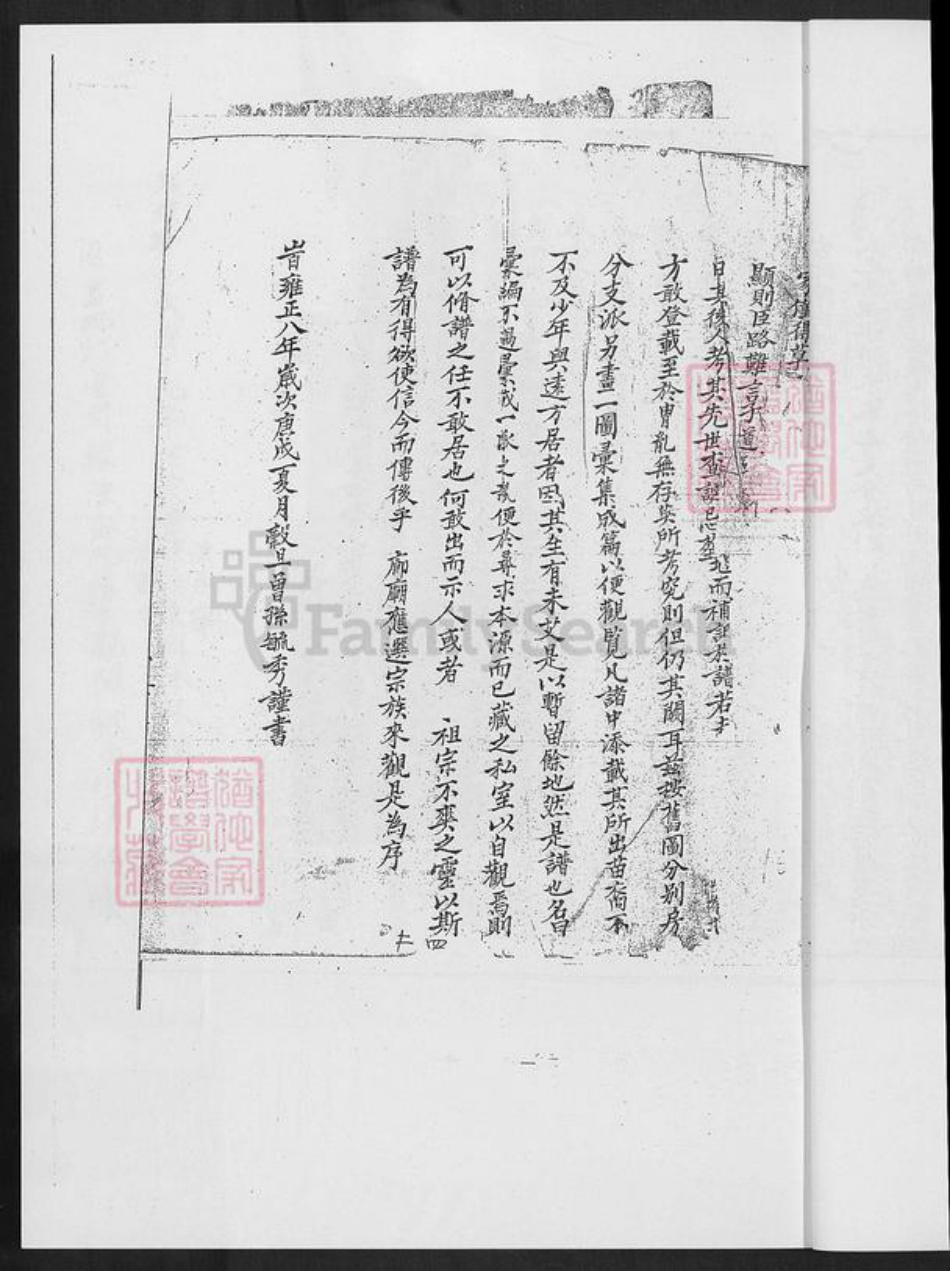 顯則臣路難言子道
日其後人考其先世 而補 其譜若
方敢登載至於胄亂無存莫所考究則但仍其闕耳茲按舊圖分別房
分支派另畫一圖彙集成篇以便觀覽凡諸中添載其所出苗裔不
不及少年與遠方居者因其生有未艾是以暫留餘地然是譜也名曰
彙編不過彙或一 之 便於尋求本源而已藏之私室以自觀焉則
可以脩譜之任不敢居也何敢出而示人或者 祖宗不爽之靈以斯
譜為有得欲使信今而傳後乎 廊廟應選宗族來觀是為序
旹雍正八年歲次庚戌夏月穀旦曾孫毓秀謹書
四
FamilySearch